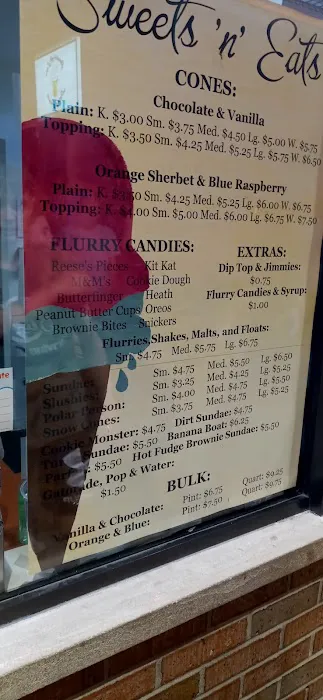 Sweets 'n' Eats
CONES:
Chocolate & Vanilla
Plain: K. $3.00 Sm. $3.75 Med. $4.50 Lg. $5.00 W. $5.75
Topping: K. $3.50 Sm. $4.25 Med. $5.25 Lg. $5.75 W. $6.50
Orange Sherbet & Blue Raspberry
Plain: K. $3.50 Sm. $4.25 Med. $5.25 Lg. $6.00 W. $6.75
Topping: K. $4.00 Sm. $5.00 Med. $6.00 Lg. $6.75 W. $7.50
FLURRY CANDIES:
Reese's Pieces Kit Kat
M&M's Cookie Dough
Butterfinger Heath
Peanut Butter Cups Oreos
Brownie Bites Snickers
EXTRAS:
Dip Top & Jimmies:
$0.75
Flurry Candies & Syrup:
$1.00
Flurries, Shakes, Malts, and Floats:
Sm. $4.75 Med. $5.75 Lg. $6.75
Sundaes: Sm. $4.75 Med. $5.50 Lg. $6.50
Slushies: Sm. $3.25 Med. $4.25 Lg. $5.25
Polar Person: Sm. $4.00 Med. $4.75 Lg. $5.50
Snow Cones: Sm. $3.75 Med. $4.75 Lg. $5.25
Cookie Monster: $4.75 Dirt Sundae: $4.75
Sundae: $5.50 Banana Boat: $6.25
$5.50 Hot Fudge Brownie Sundae: $5.50
Gatorade, Pop & Water:
$1.50
BULK:
Vanilla & Chocolate: Pint: $6.75 Quart: $9.25
Orange & Blue: Pint: $7.50 Quart: $9.75